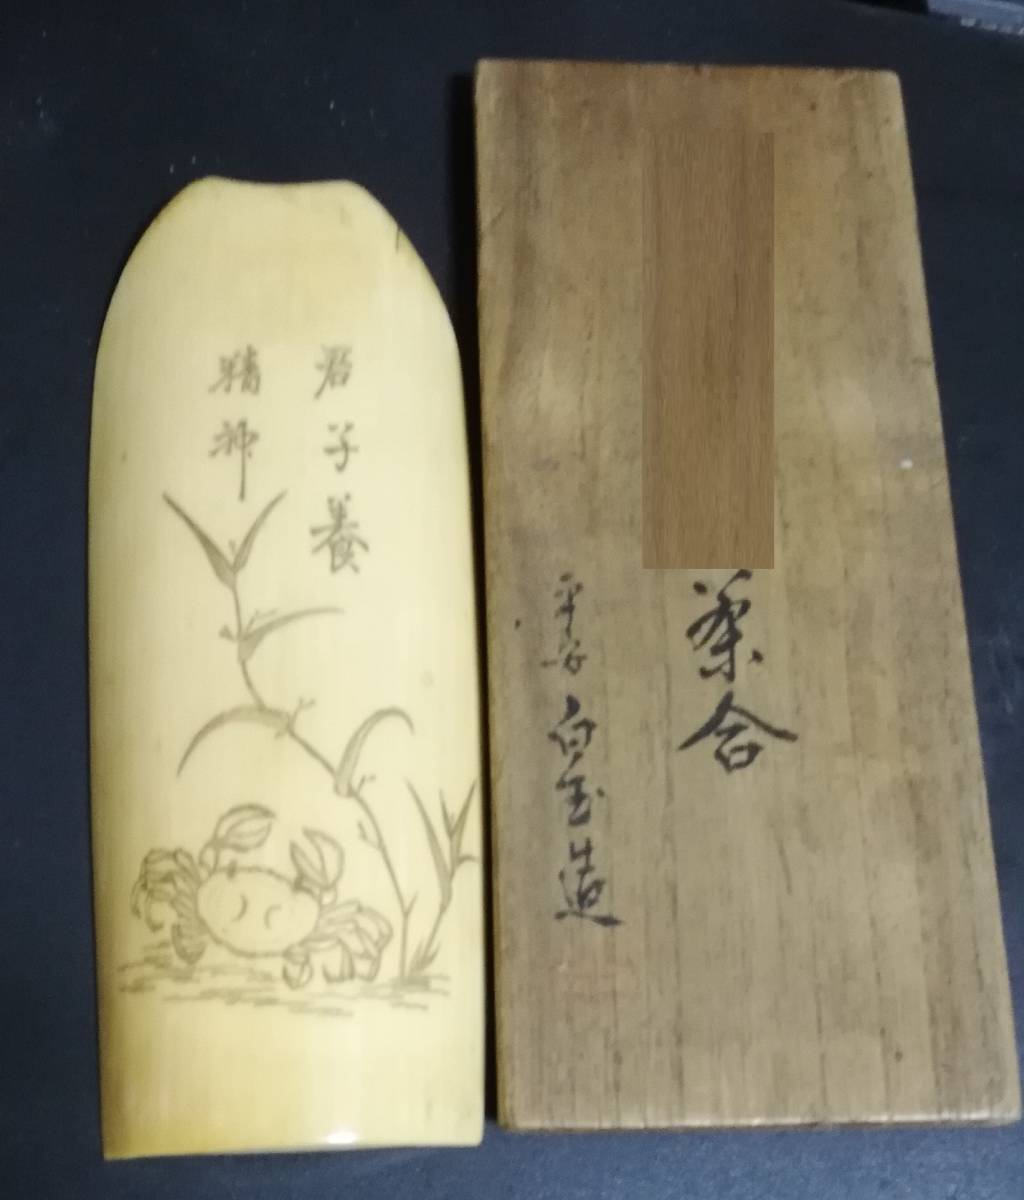 君子養
精神
茶合
平安 白玉造